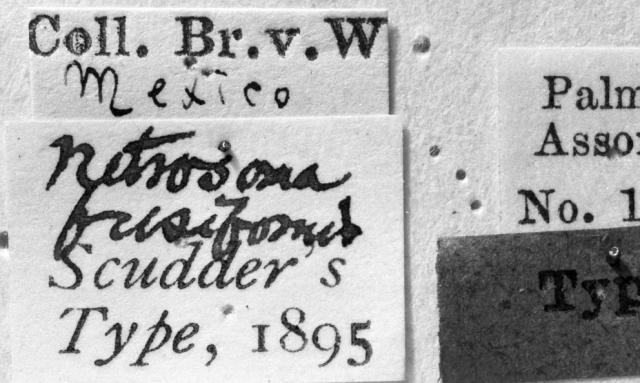 Coll. Br. v. W
Mexico
Netrosoma
fusiformis
Scudder's
Type, 1895
Palm
Assor
No. 1
Typ